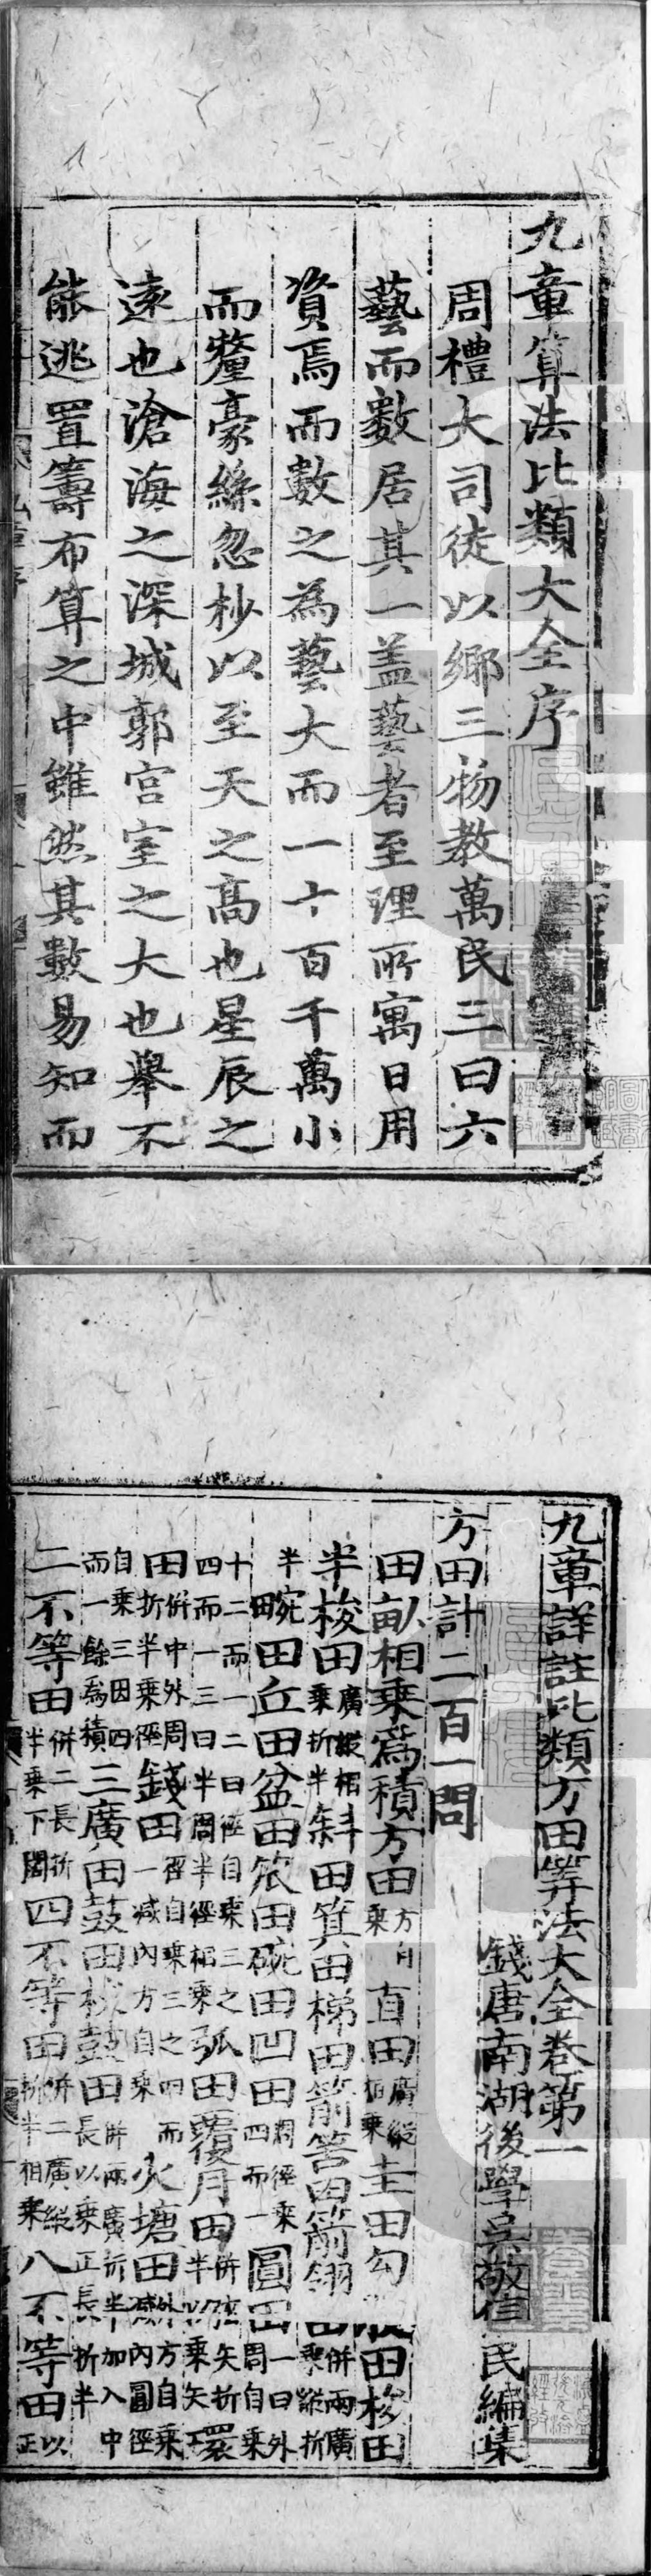 九章算法比類大全序
周禮大司徒以鄉三物教萬民三曰六
藝而數居其一盖藝者至理所寓日用
資焉而數之為藝大而一十百千萬小
而釐豪絲忽杪以至天之高也星辰之
遠也滄海之深城郭宫室之大也舉不
能逃置籌布算之中雖然其數易知而
九章詳註比類方田筭法大全卷第一
錢唐南湖後學吳敬信民編集
方田計二百一問
田畝相乗爲積方田方自乗直田廣縱相乗圭田勾股田梭田
半梭田廣縱相乗折半斜田箕田梯田箭筈田箭翎田併兩廣乗縱折
半
畹田丘田盆田
田碗田凹田周徑乗四而一圓田一曰外周自乗
十二而一二曰徑自乗三之四而一三曰半周半徑相乗弧田覆月田併弦矢折半以乗矢環
田併中外周折半乗徑錢田徑自乗三之四而一减内方自乗火塘田外方自乗减内圓徑
自乗三因四而一餘爲積三廣田鼓田杖鼓田併兩廣折半加入中長以乗正長折半
二不等田併二長折半乗下闊四不等田併二廣縱折半相乗八不等田以正